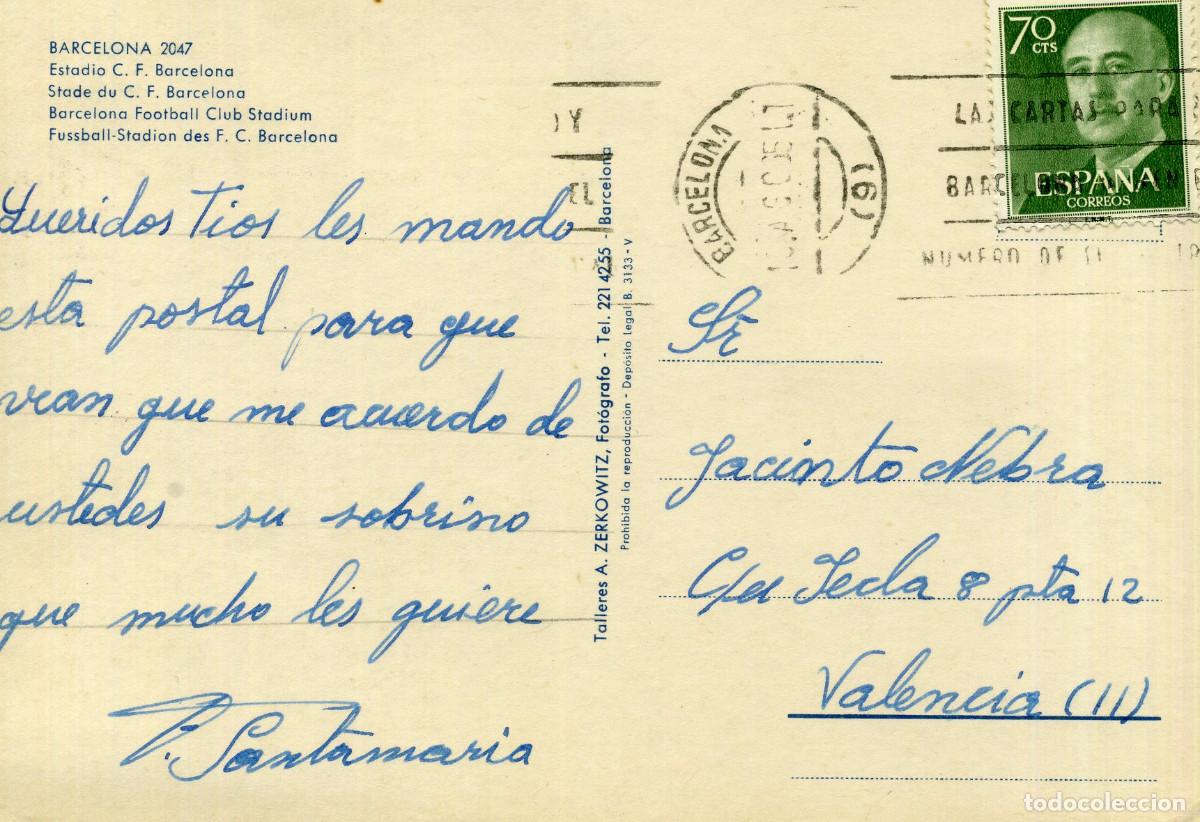 BARCELONA 2047
Estadio C. F. Barcelona
Stade du C. F. Barcelona
Barcelona Football Club Stadium
Fussball-Stadion des F. C. Barcelona
Queridos Tios les mando
esta postal para que
vean que me acuerdo de
ustedes su sobrino
que mucho les quiere
Santamaria
Talleres A. ZERKOWITZ, Fotógrafo - Tel. 221 42 55 - Barcelona
Prohibida la reproducción - Depósito Legal B. 3133 - V
BARCELONA
(6)
LAS CARTAS PARA
BARCELONA
NUMERO DE
70 CTS
ESPAÑA
CORREOS
Sr
Jacinto Nebra
C/ Tecla 8 pta 12
Valencia (11)
todocoleccion